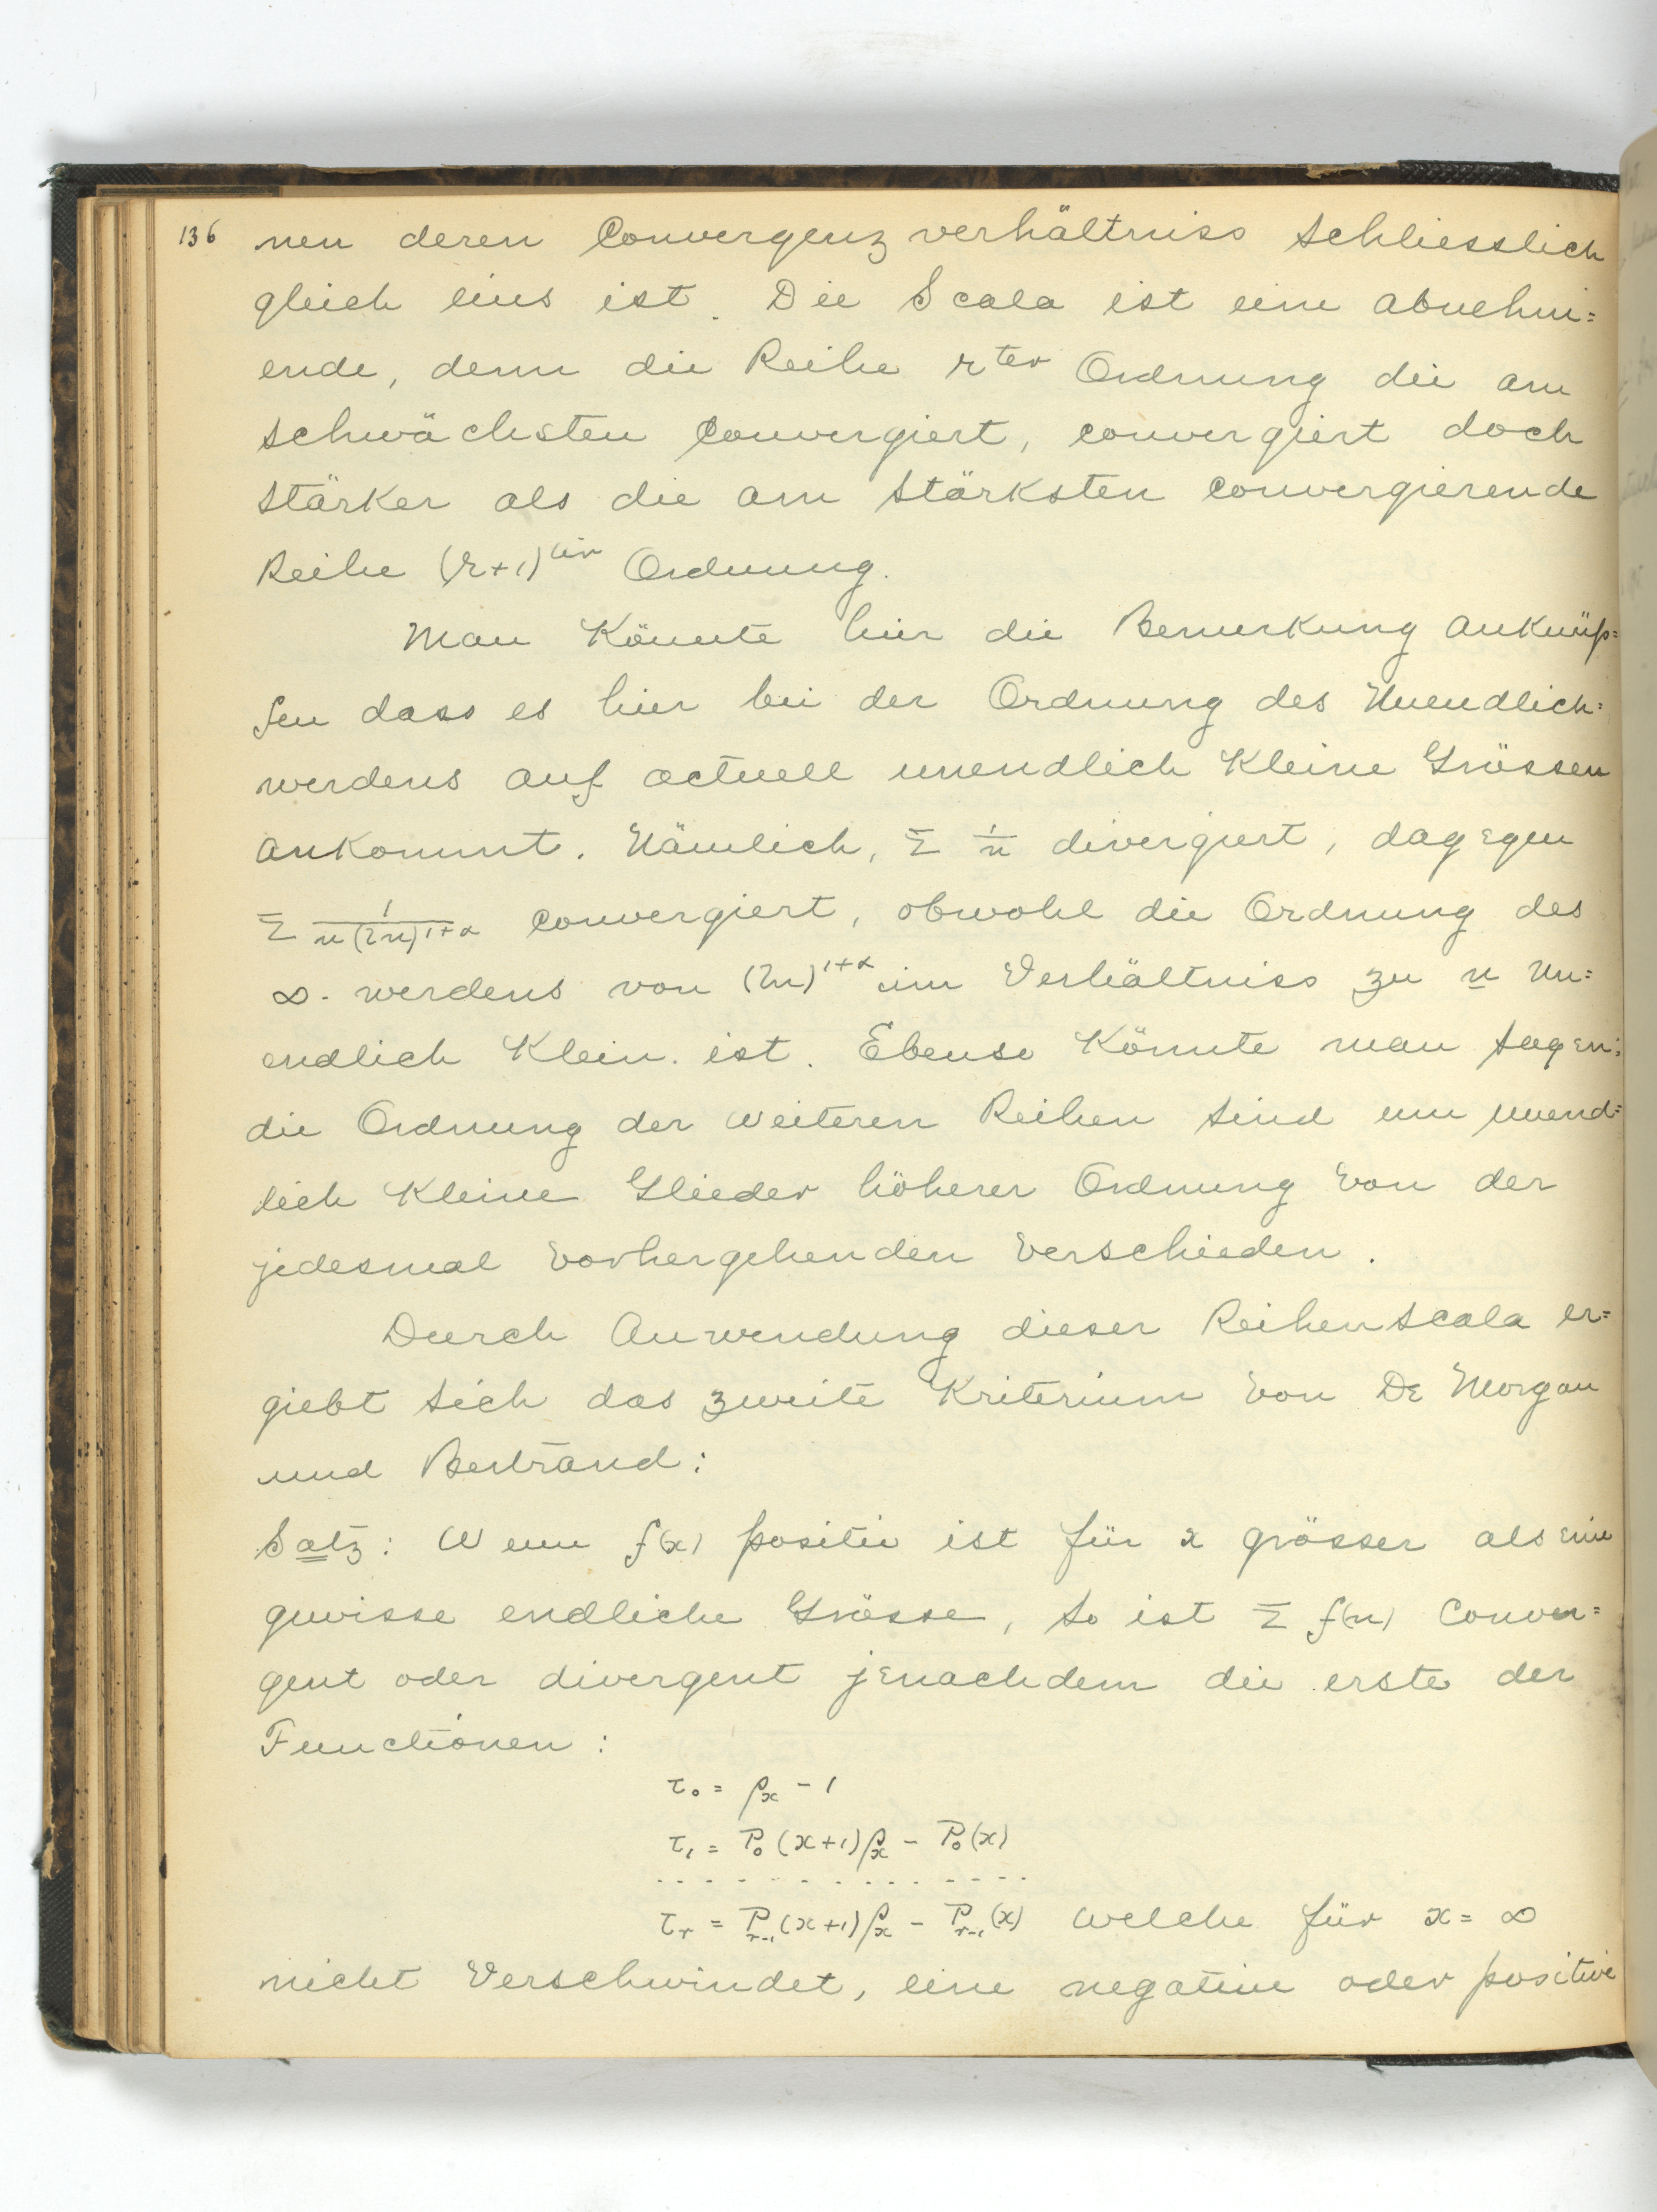 136 nen deren Convergenzverhältniss schliesslich
gleich eins ist. Die Scala ist eine abnehm=
ende, denn die Reihe r^ter Ordnung die am
schwächsten convergiert, convergiert doch
stärker als die am stärksten convergierende
Reihe (r+1)^ter Ordnung.
Man könnte hier die Bemerkung anknüp=
fen dass es hier bei der Ordnung des Unendlich=
werdens auf actuell unendlich kleine Grössen
ankommt. Nämlich, Σ 1/n divergiert, dagegen
Σ 1/(n(ln)^1+α) convergiert, obwohl die Ordnung des
∞. werdens von (ln)^1+α im Verhältniss zu n un=
endlich klein ist. Ebenso könnte man sagen:
die Ordnung der weiteren Reihen sind um unend=
lich kleine Glieder höherer Ordnung von der
jedesmal vorhergehenden verschieden.
Durch Anwendung dieser Reihenscala er=
giebt sich das zweite Kriterium von De Morgan
und Bertrand:
Satz: Wenn f(x) positiv ist für x grösser als eine
gewisse endliche Grösse, so ist Σ f(n) conver=
gent oder divergent jenachdem die erste der
Functionen:
τ₀ = ρₓ - 1
τ₁ = P₀(x+1)ρₓ - P₀(x)
. . . . . . . . . . . . . . .
τᵣ = Pᵣ₋₁(x+1)ρₓ - Pᵣ₋₁(x) welche für x = ∞
nicht verschwindet, eine negative oder positive